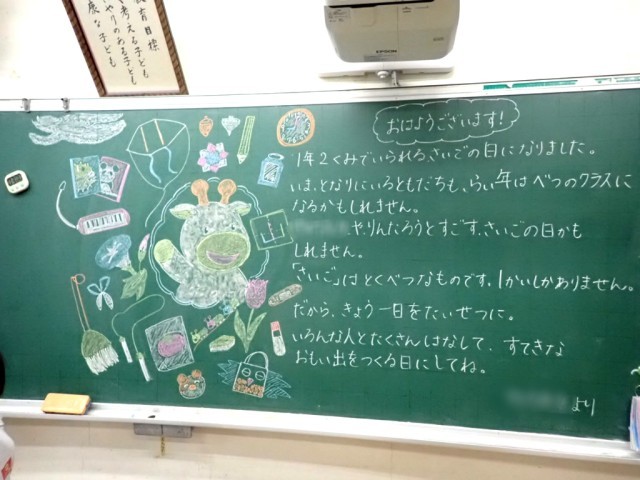 教育目標
考える子ども
やりのある子ども
康な子ども
EPSON
おはようございます!
1年2くみでいられる、さいごの日になりました。
いま、となりにいるともだちも、らい年はべつのクラスに
なるかもしれません。
や、りんたろうとすごす、さいごの日かも
しれません。
「さいご」はとくべつなものです。1かいしかありません。
だから、きょう一日をたいせつに。
いろんな人とたくさんはなして、すてきな
おもい出をつくる日にしてね。
より